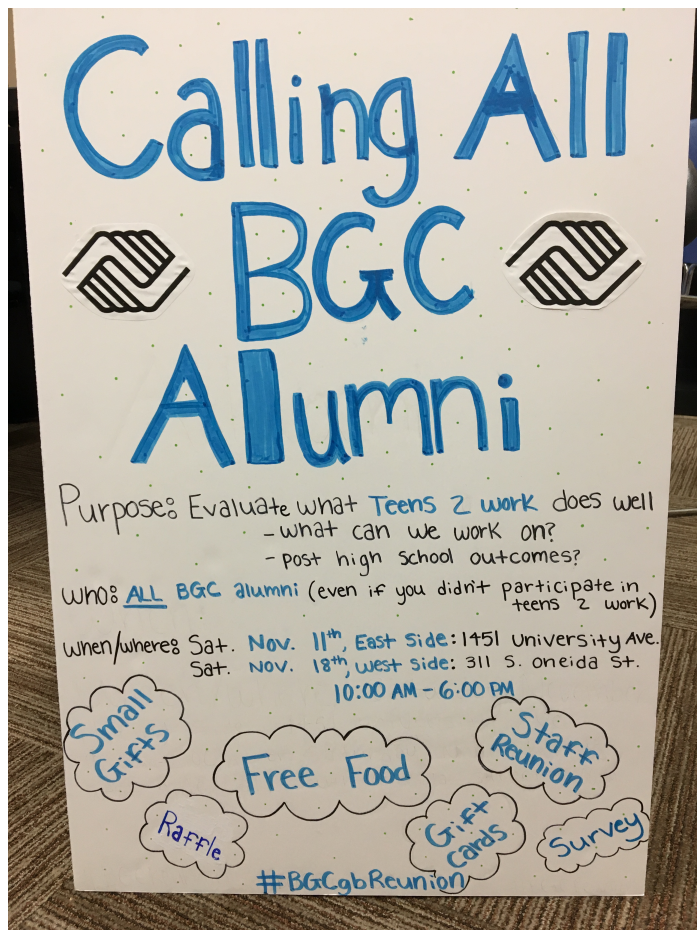 Calling All
BGC
Alumni
Purpose: Evaluate what Teens 2 work does well
- what can we work on?
- post high school outcomes?
who: ALL BGC alumni (even if you didn't participate in
teens 2 work)
when/where: Sat. Nov. 11th, East Side: 1451 University Ave.
Sat. Nov. 18th, west side: 311 S. oneida St.
10:00 AM - 6:00 PM
Small
Gifts
Free Food
Staff
Reunion
Raffle
Gift
cards
Survey
#BGCgbReunion